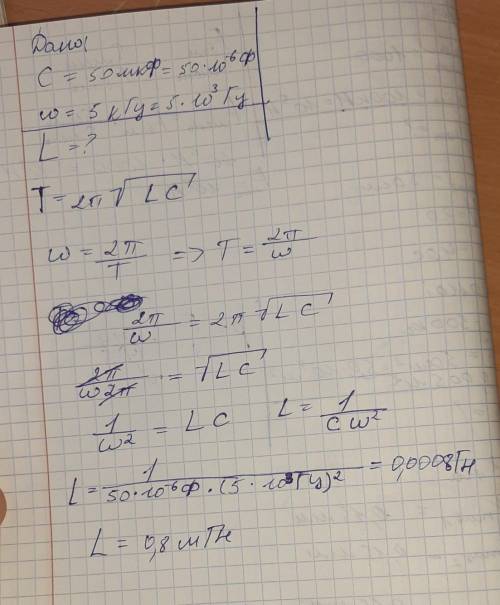 Дано:
C = 50 мкФ = 50·10⁻⁶ Ф
ω = 5 кГц = 5·10³ Гц
L = ?
T = 2π√LC
ω = 2π/T => T = 2π/ω
2π/ω = 2π√LC
2π/ω2π = √LC
1/ω² = LC L = 1/Cω²
L = 1/50·10⁻⁶Ф·(5·10³Гц)² = 0,0008Гн
L = 0,8 мГн